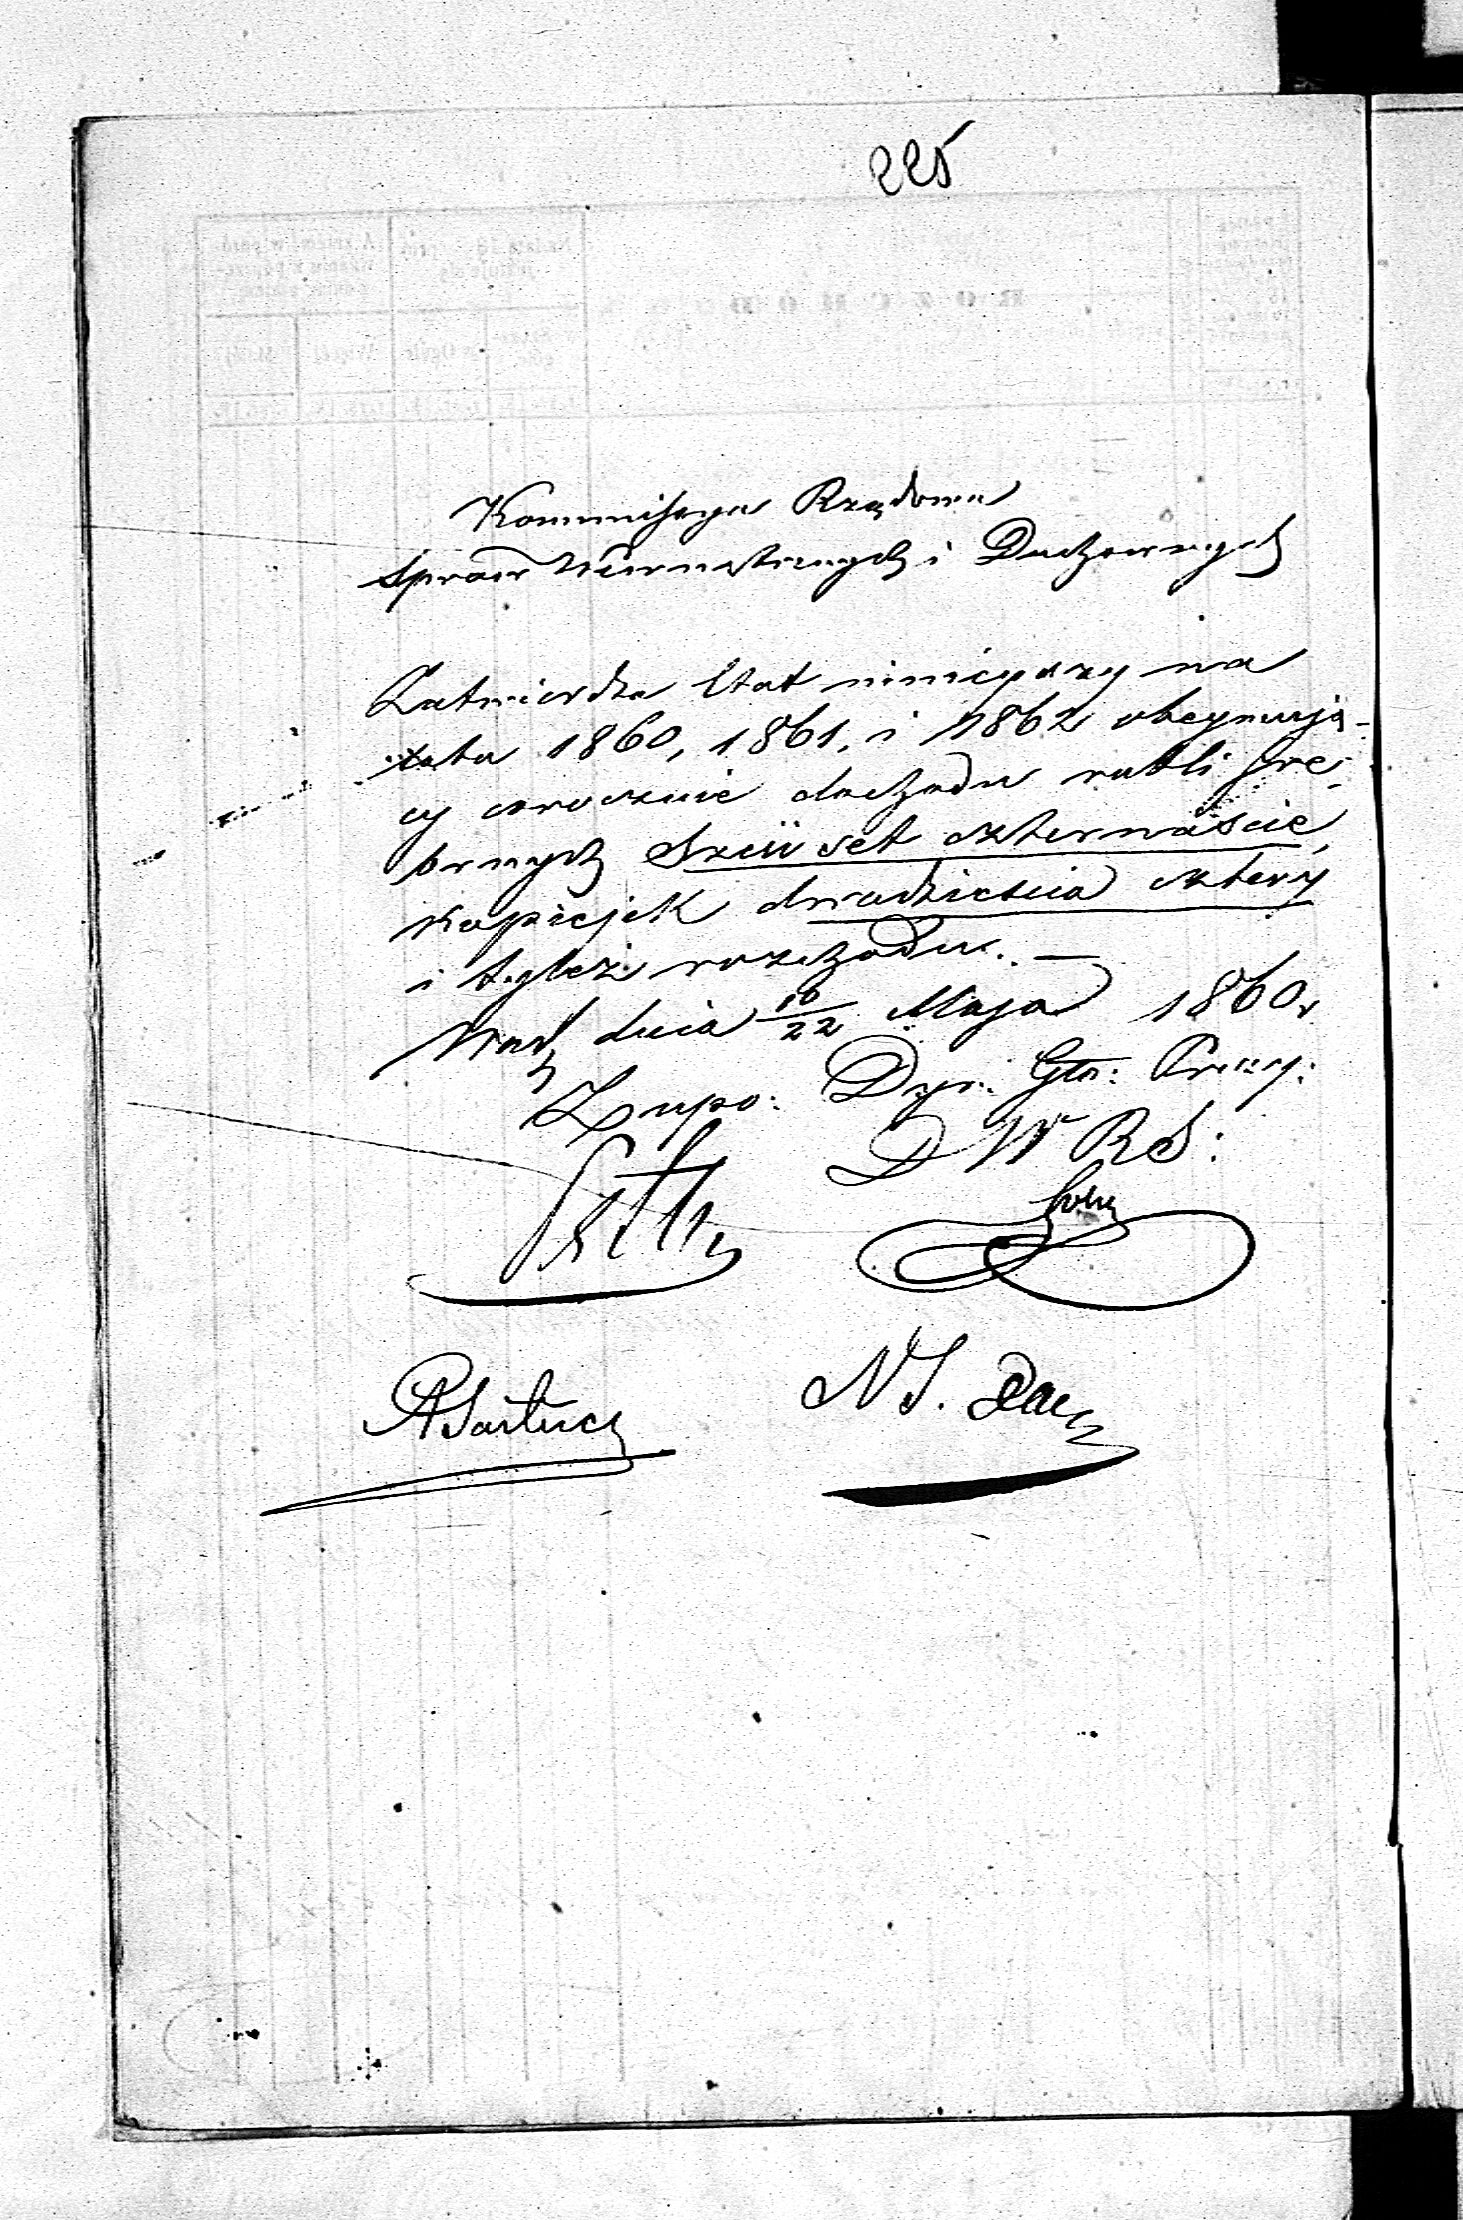 225
Kommissya Rządowa
Spraw Wewnętrznych i Duchownych
Zatwierdza Etat niniejszy na
lata 1860, 1861, i 1862 obejmują-
cy corocznie dochodu rubli sre-
brnych sześćset czternaście,
kopiejek dwadzieścia cztery
i tyleż rozchodu. —
Warsz dnia 10/22 Maja 1860 r
Z upo: Dyr: Głó: Prezy:
D W R S:
N S.